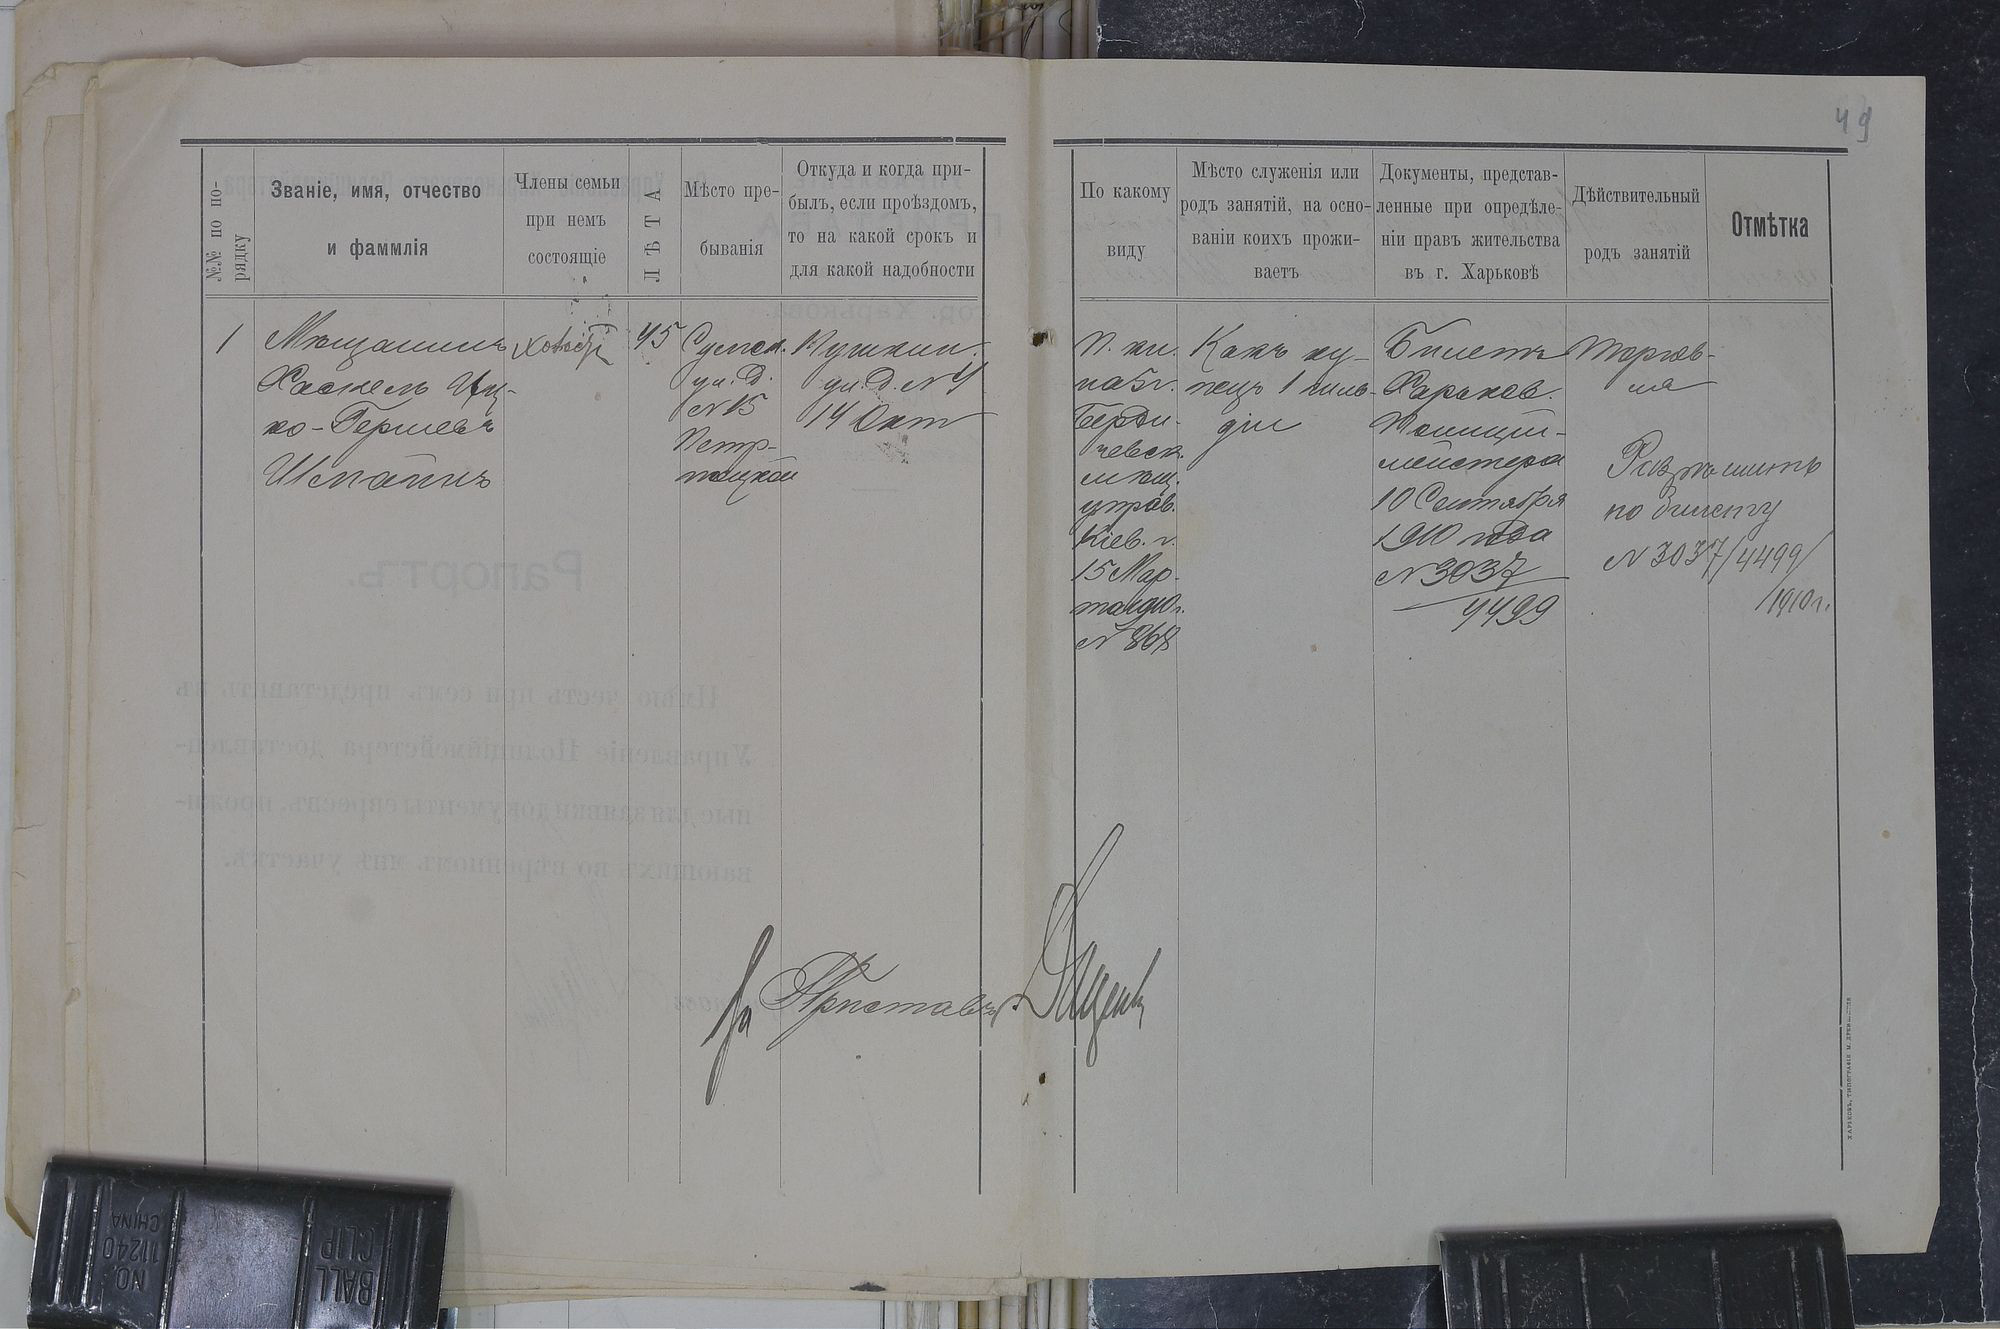 49
№№ по по-
рядку
Званіе, имя, отчество
и фаммлія
Члены семьи
при немъ
состоящіе
ЛѢТА
Мѣсто пре-
быванія
Откуда и когда при-
былъ, если проѣздомъ,
то на какой срокъ и
для какой надобности
По какому
виду
Мѣсто служенія или
родъ занятій, на осно-
ваніи коихъ прожи-
ваетъ
Документы, представ-
ленные при опредѣле-
ніи правъ жительства
въ г. Харьковѣ
Дѣйствительный
родъ занятій
Отмѣтка
1
Мѣщанинъ
Хаскель Иц-
ко-Гершевъ
Шпайнъ
холост
45
Сумск.
ул. д.
№ 15
Петр-
Пушкин.
ул. д. № 4
14 Окт
П. кн.
на 5 г.
Берди-
чевск.
мѣщ.
управ.
Кіев. г.
15 Мар-
та 1910 г.
№ 868
Какъ ку-
пецъ 1 гиль-
діи
Билетъ
Харьков.
Полицій-
мейстера
10 Сентября
1910 года
№ 3037
4499
Торгов-
ля
Разрѣшить
по билету
№ 3037/4499/
/1910 г.
За Приставъ
ХАРЬКОВЪ, ТИПОГРАФІЯ М.
Рапортъ.
Имѣю честь при семъ представить въ
Управленіе Полиціймейстера доставлен-
ные для заявки документы евреевъ, прожи-
вающихъ во ввѣренномъ мнѣ участкѣ.
гор. Харькова.
BALL
CLIP
NO.
11240
CHINA